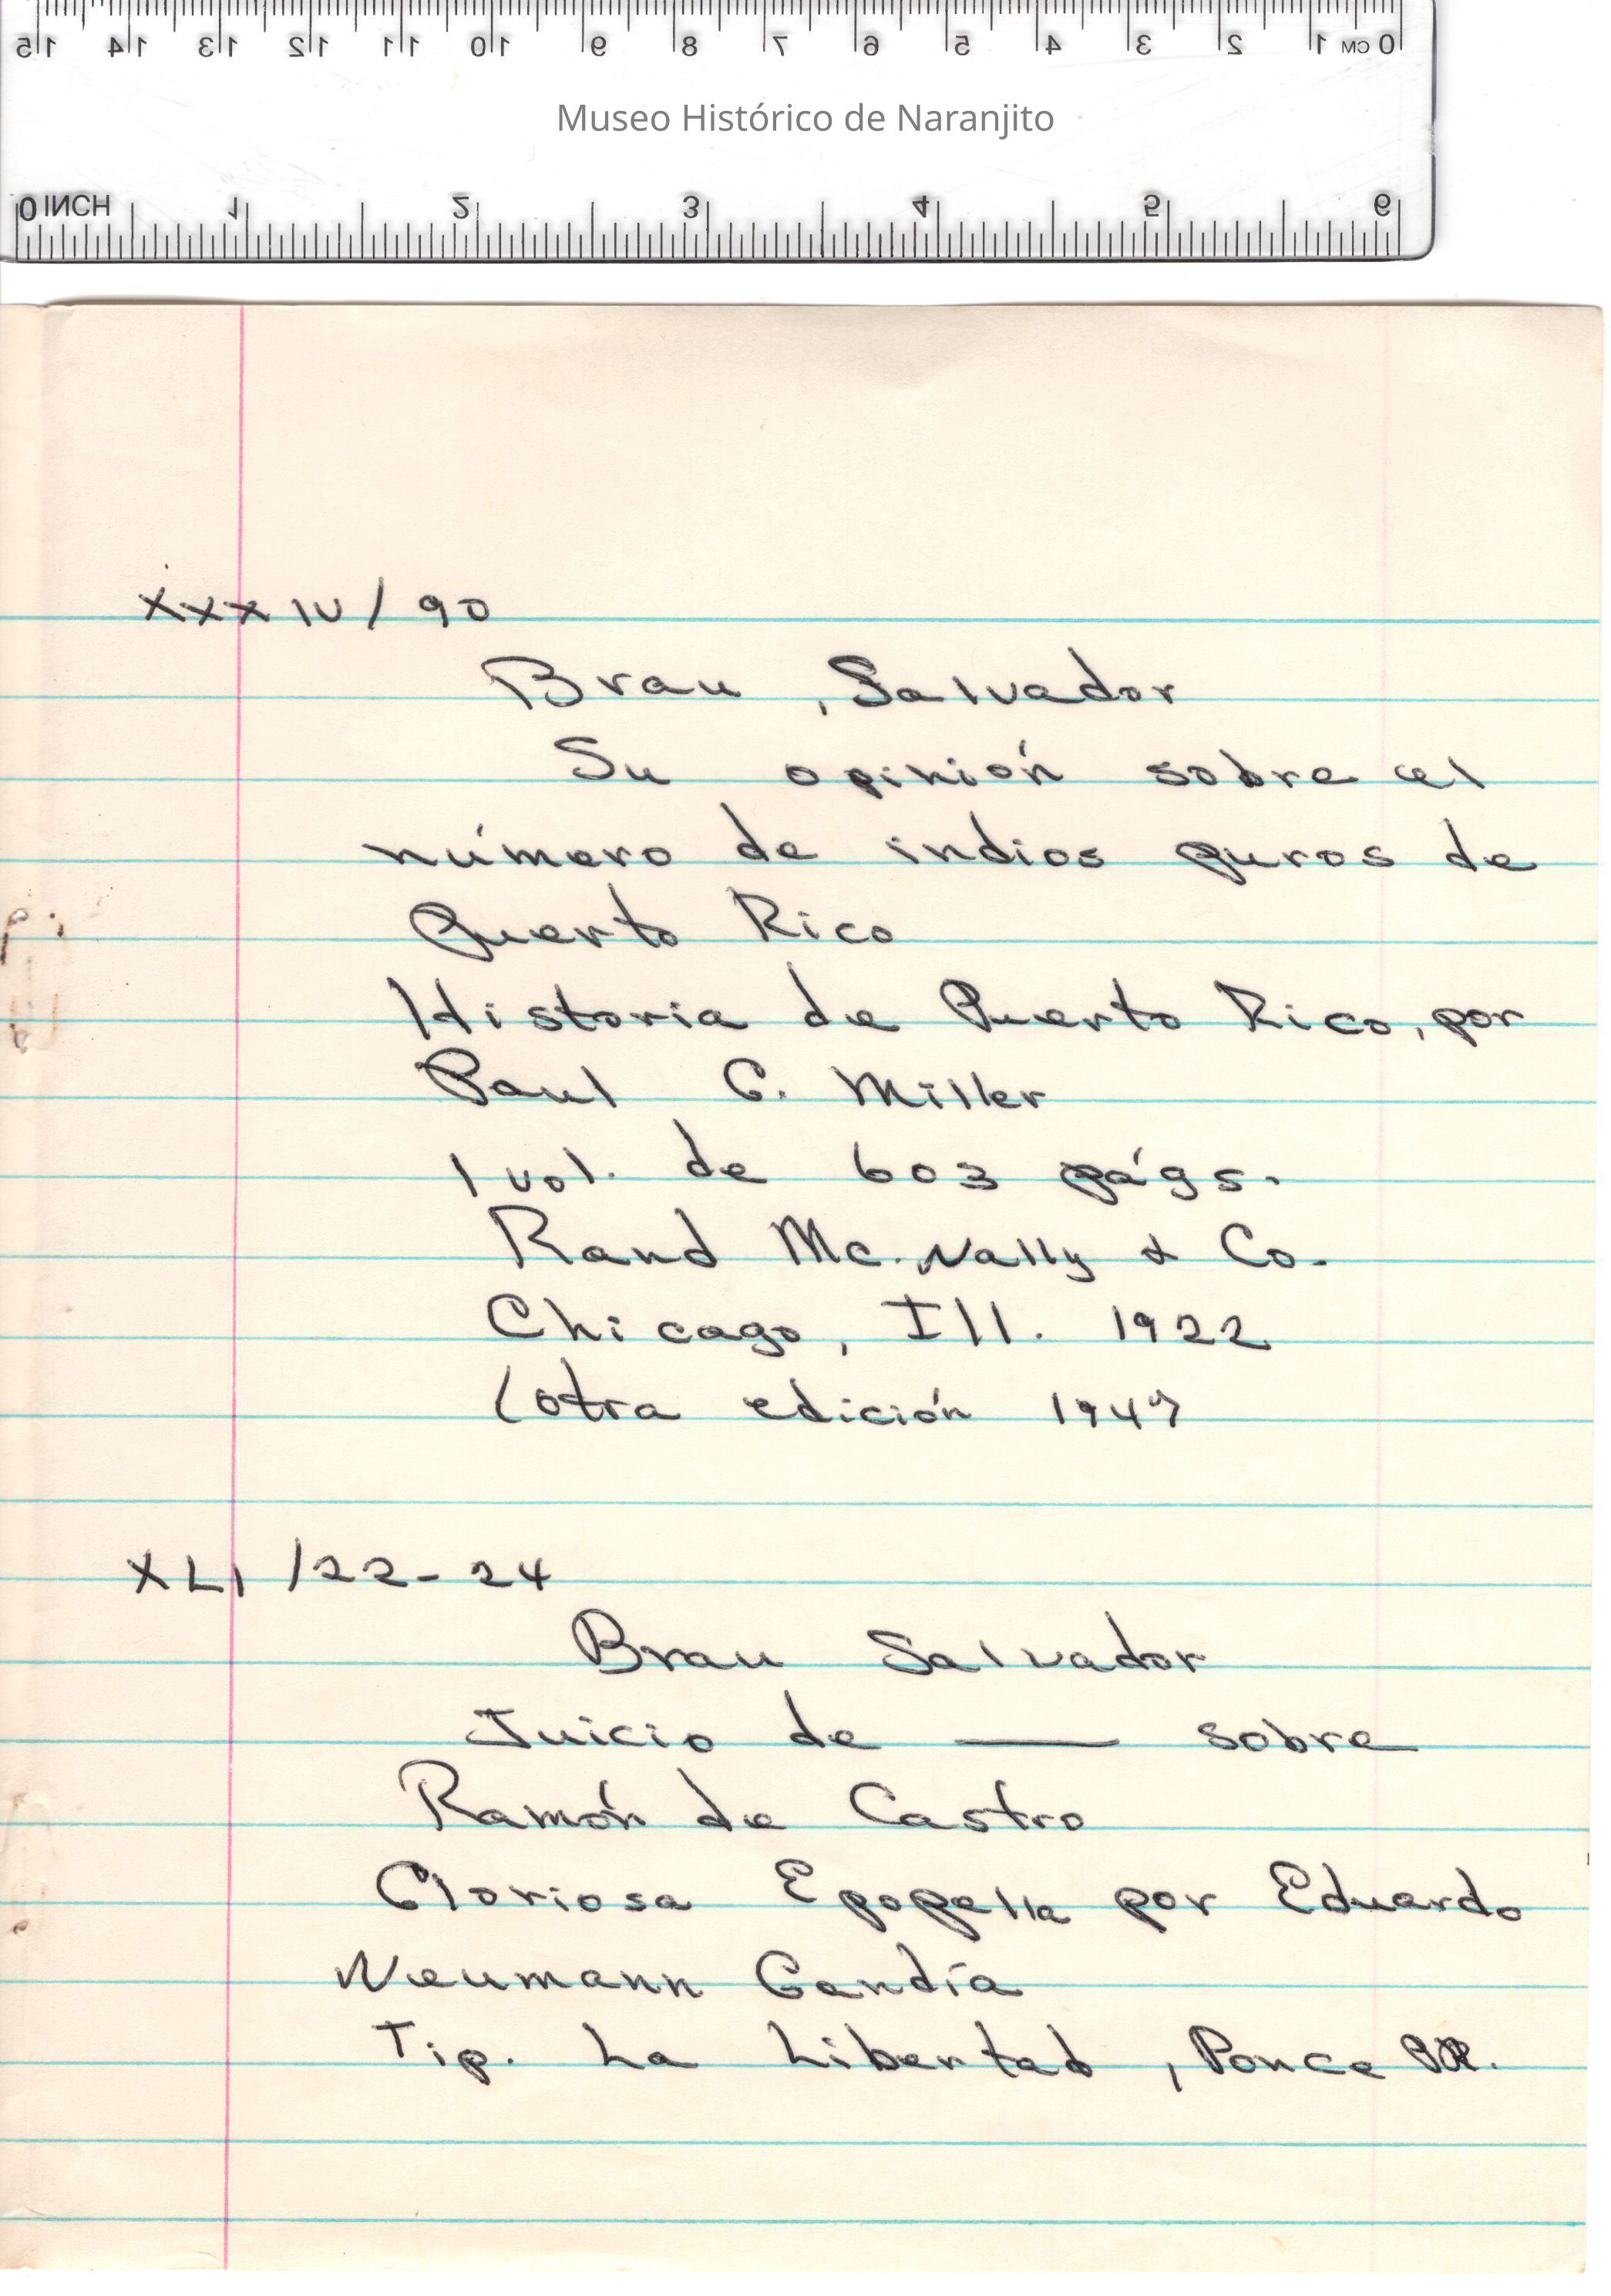 15 14 13 12 11 10 9 8 7 6 5 4 3 2 1 CM 0
Museo Histórico de Naranjito
0 INCH 1 2 3 4 5 6
XXXIV / 90
Brau, Salvador
Su opinión sobre el
número de indios puros de
Puerto Rico
Historia de Puerto Rico, por
Paul G. Miller
1 vol. de 603 págs.
Rand Mc. Nally & Co.
Chicago, Ill. 1922
(otra edición 1947
XLI /22-24
Brau Salvador
Juicio de — sobre
Ramón de Castro
Gloriosa Epopella por Eduardo
Neumann Gandía
Tip. La Libertad, Ponce P.R.